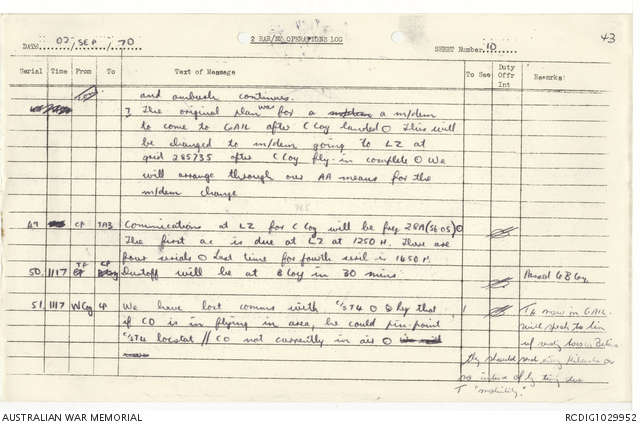 43
2 RAR/NZ OPERATIONS LOG
DATE 07/SEP/70
SHEET Number 10
Serial Time From To Text of Message To See Duty Offr Int Remarks:
and ambush continues.
3 The original plan was for a m/dem
to come to GAIL after C Coy landed O This will
be changed to m/dem going to LZ at
grid 285735 after C Coy fly-in complete O We
will arrange through our AA means for the
m/dem change
49 CP TA3 Communications at LZ for C Coy will be freq 28A (5605) O
The first ac is due at LZ at 1250 H. There are
four serials O Last time for fourth serial is 1650 H.
50. 1117 Dustoff will be at B Coy in 30 mins. Passed to B Coy.
51. 1117 W Coy CP We have lost comms with
if CO is in flying in area, he could pin-point
locstat // CO not currently in air O
in GAIL
will speak to
they should
"mobility."
AUSTRALIAN WAR MEMORIAL
RCDIG1029952